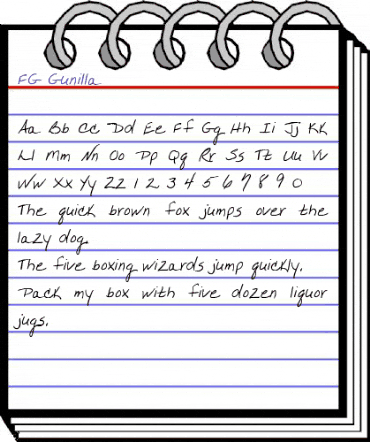 FG Gunilla
Aa Bb Cc Dd Ee Ff Gg Hh Ii Jj Kk
Ll Mm Nn Oo Pp Qq Rr Ss Tt Uu Vv
Ww Xx Yy Zz 1 2 3 4 5 6 7 8 9 0
The quick brown fox jumps over the
lazy dog.
The five boxing wizards jump quickly.
Pack my box with five dozen liquor
jugs.